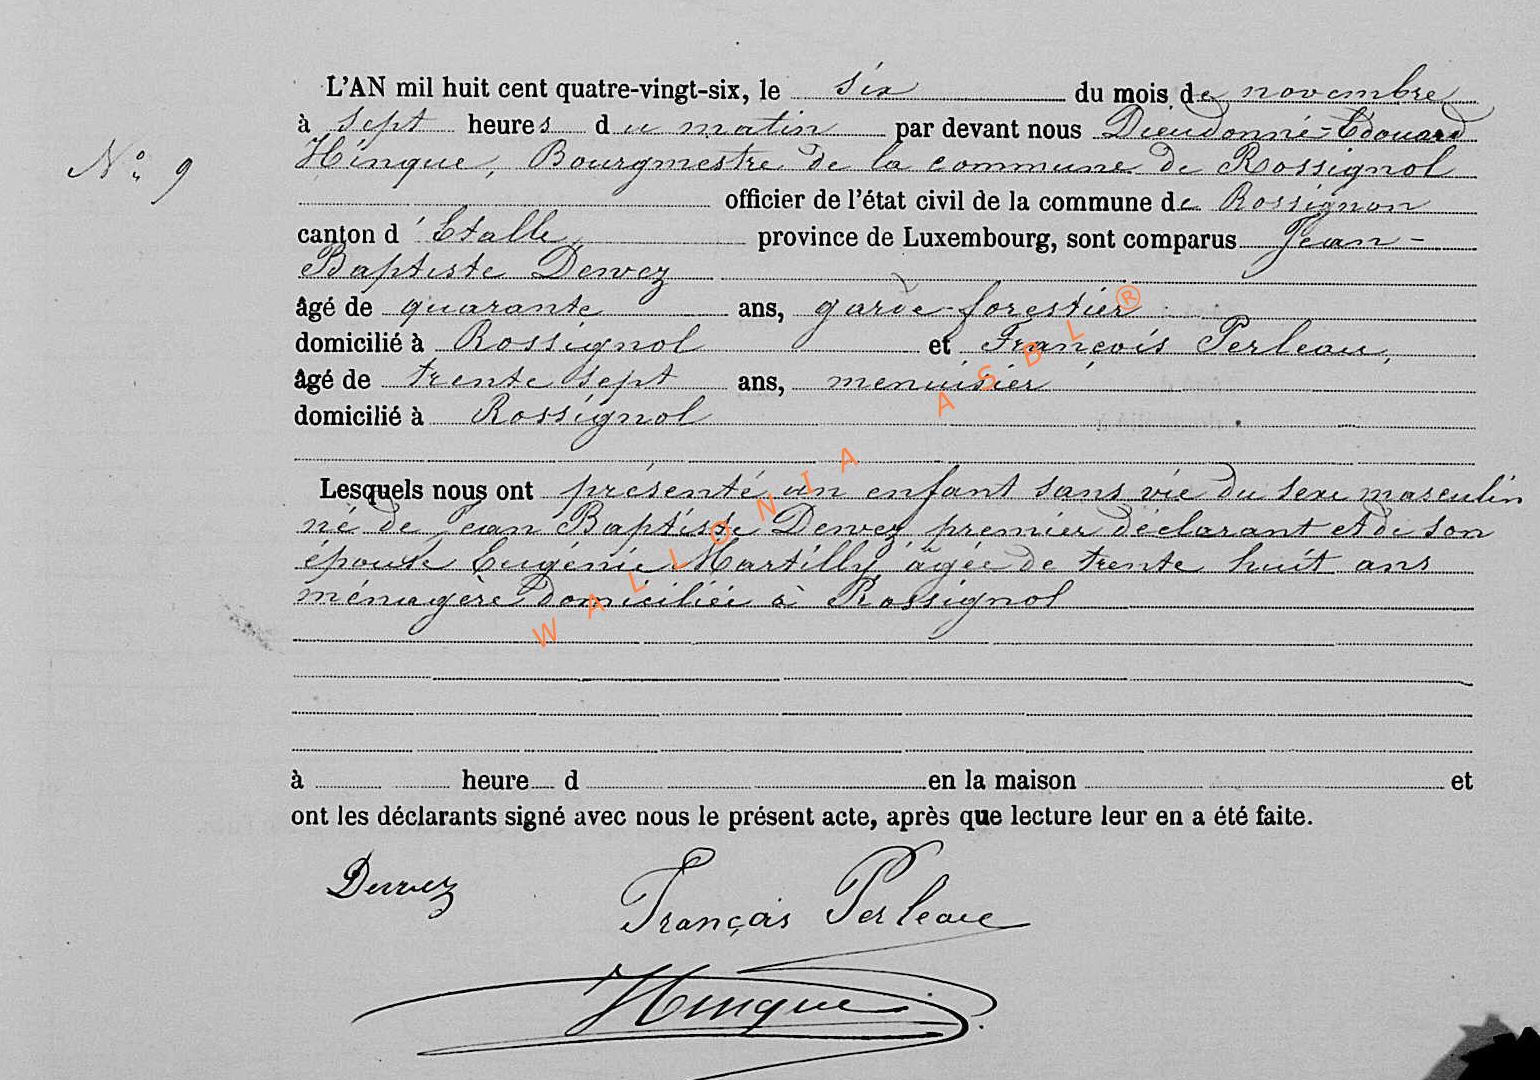 L'AN mil huit cent quatre-vingt-six, le six du mois de novembre
à sept heures du matin par devant nous Dieudonné-Edouard
N° 9
Hinque, Bourgmestre de la commune de Rossignol
officier de l'état civil de la commune de Rossignon
canton d'Etalle province de Luxembourg, sont comparus Jean-
Baptiste Dewez
âgé de quarante ans, garde-forestier
domicilié à Rossignol et François Perleau,
âgé de trente sept ans, menuisier
domicilié à Rossignol
Lesquels nous ont présenté un enfant sans vie du sexe masculin
né de Jean Baptiste Dewez premier déclarant et de son
épouse Eugénie Martilly âgée de trente huit ans
ménagère domiciliée à Rossignol
à heure d en la maison et
ont les déclarants signé avec nous le présent acte, après que lecture leur en a été faite.
Dewez
François Perleau
Hinque
WALLONIA ASBL ®